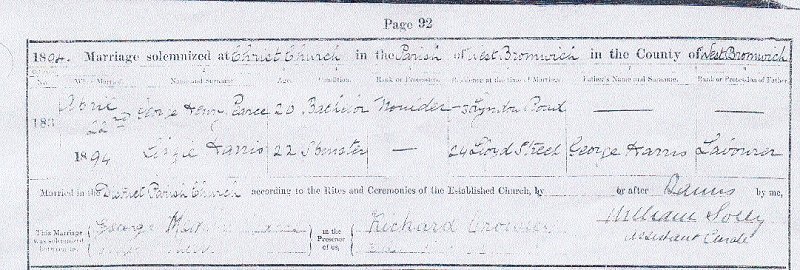 Page 92
1894. Marriage solemnized at Christ Church in the Parish of West Bromwich in the County of West Bromwich
No. When Married. Name and Surname. Age. Condition. Rank or Profession. Residence at the time of Marriage. Father's Name and Surname. Rank or Profession of Father.
183 June George Henry Pearce 20 Bachelor Moulder Lyndon Road — —
1894 Lizzie Harris 22 Spinster — 24 Lloyd Street George Harris Labourer
Married in the District Parish Church according to the Rites and Ceremonies of the Established Church, by or after Banns by me,
This Marriage was solemnized between us, George in the Presence of us, Richard William Solly
Assistant Curate